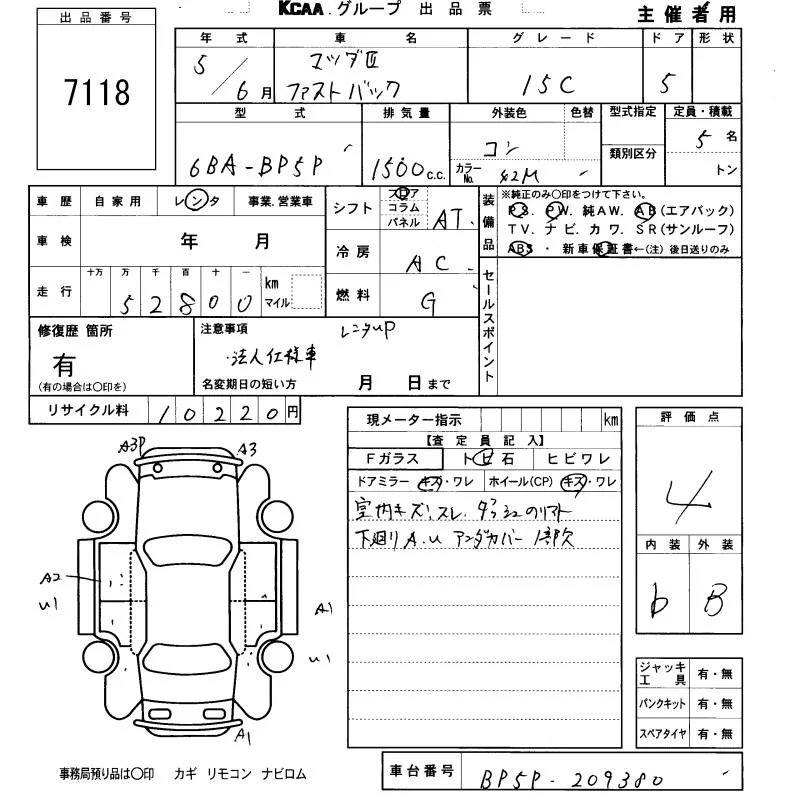 KCAA.グループ 出品票
主催者用
出品番号
7118
年式 車名 グレード ドア 形状
5/6月 マツダⅡ ファストバック 15C 5
型式 排気量 外装色 色替 型式指定 定員・積載
6BA-BP5P 1500c.c. コン カラーNo. 42M 類別区分 5名
トン
車歴 自家用 レンタ 事業.営業車
車検 年 月
走行 十万 万 千 百 十 一 km マイル
52800
シフト フロア コラム パネル AT
冷房 AC
燃料 G
装備品 ※純正のみ〇印をつけて下さい。
PS. PW. 純AW. AB(エアバック)
TV. ナビ. カワ. SR(サンルーフ)
ABS ・ 新車保証書←(注) 後日送りのみ
セールスポイント
修復歴 箇所
有
(有の場合は〇印を)
注意事項 レンタup
・法人仕様車
名変期日の短い方 月 日まで
リサイクル料 10220円
現メーター指示 km
【査定員記入】
Fガラス トビ石 ヒビワレ
ドアミラー キズ・ワレ ホイール(CP) キズ・ワレ
室内キズ、スレ.
下廻りA.U アンダカバー 1部欠
評価点
4
内装 外装
b B
A3P A3
A2
U1
A1
U1
A1
ジャッキ 工具 有・無
パンクキット 有・無
スペアタイヤ 有・無
事務局預り品は〇印 カギ リモコン ナビロム
車台番号 BP5P-209380